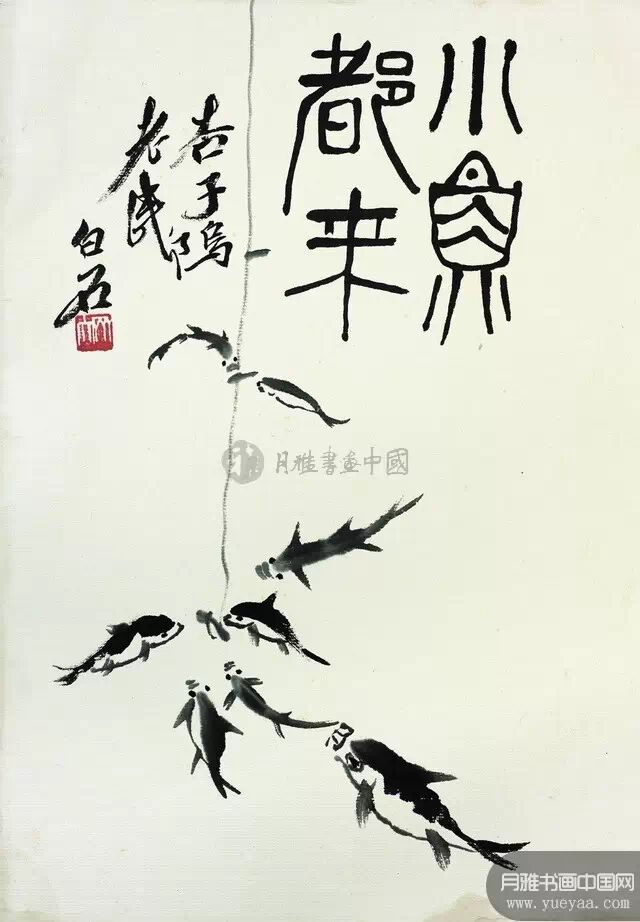 小魚
都来
杏子隖
老民
白石
月雅書畫中國
月雅书画中国网
www.yueyaa.com